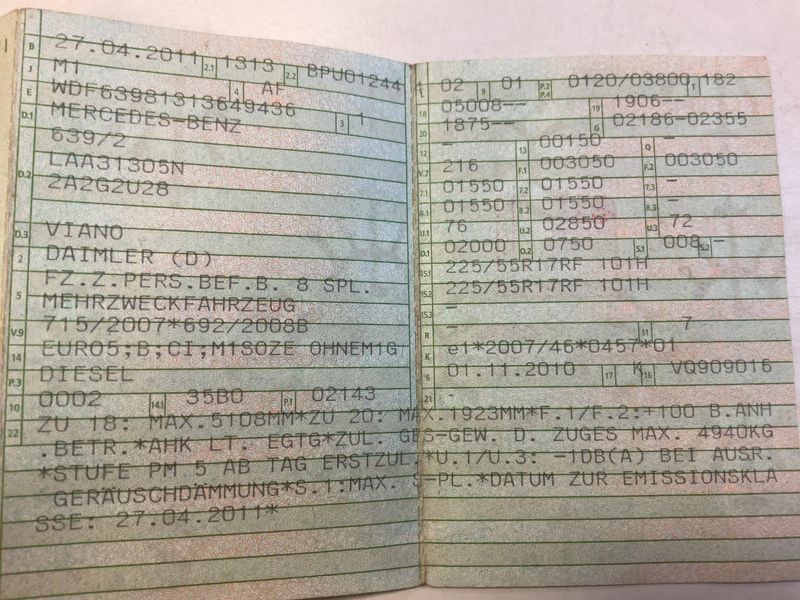 B 27.04.2011 2.1 1313 2.2 BPU01244
J M1 4 AF
E WDF63981313649436
D.1 MERCEDES-BENZ 3 1
639/2
D.2 LAA31305N
2A2G2U28
D.3 VIANO
2 DAIMLER (D)
5 FZ.Z.PERS.BEF.B. 8 SPL.
MEHRZWECKFAHRZEUG
V.9 715/2007*692/2008B
14 EURO5;B;CI,M1SOZE OHNEM1G
P.3 DIESEL
10 0002 14.1 35B0 P.1 02143
L 02 9 01 P.2 P.4 0120/03800 T 182
18 05008-- 19 1906--
20 1875-- G 02186-02355
- 13 00150 Q -
V.7 216 F.1 003050 F.2 003050
7.1 01550 7.2 01550 7.3 -
8.1 01550 8.2 01550 8.3 -
U.1 76 U.2 02850 U.3 72
O.1 02000 O.2 0750 S.1 008 S.2 -
15.1 225/55R17RF 101H
15.2 225/55R17RF 101H
15.3 -
R - 11 7
K e1*2007/46*0457*01
6 01.11.2010 17 K 16 VQ909016
21 -
22 ZU 18: MAX.5108MM*ZU 20: MAX.1923MM*F.1/F.2:+100 B.ANH
.BETR.*AHK LT. EGTG*ZUL. GES-GEW. D. ZUGES MAX. 4940KG
*STUFE PM 5 AB TAG ERSTZUL.*U.1/U.3: -1DB(A) BEI AUSR.
GERÄUSCHDÄMMUNG*S.1:MAX. S-PL.*DATUM ZUR EMISSIONSKLA
SSE: 27.04.2011*